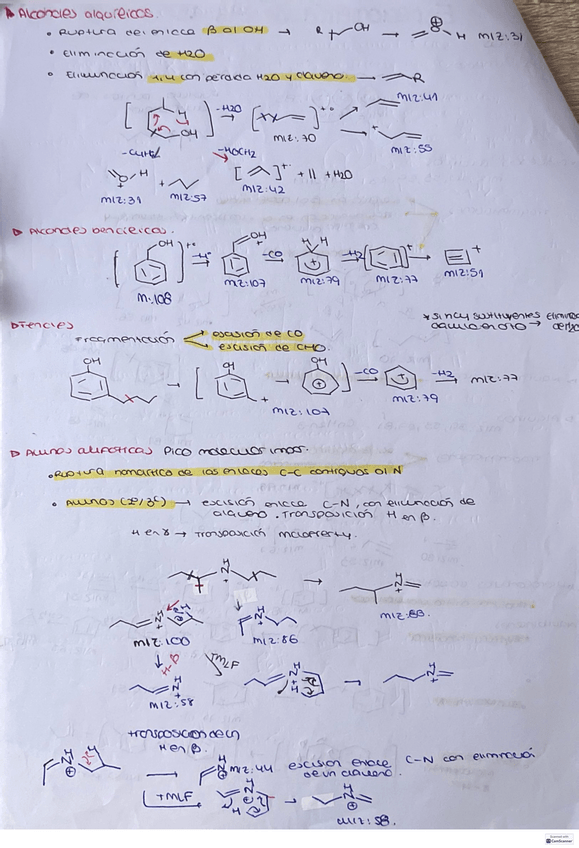 Alcoholes alquílicos.
• Ruptura del enlace β al OH → R OH → O H m/z: 31
• Eliminación de H2O
• Eliminación 1,4 con pérdida H2O y alqueno → R
-H2O m/z: 41
H OH m/z: 70 m/z: 55
-C4H8 -HOCH2
O H + + || + H2O
m/z: 31 m/z: 57 m/z: 42
Alcoholes bencílicos.
OH -H• OH -CO H H -H2
m: 108 m/z: 107 m/z: 79 m/z: 77 m/z: 51
Fenoles * si hay sustituyentes
Fragmentación escisión de CO
escisión de CHO.
OH → OH → OH -CO -H2 m/z: 77
m/z: 107 m/z: 79
Aminas alifáticas Pico molecular impar.
• Ruptura homolítica de los enlaces C-C contiguos al N
• Aminas (2º/3º) → escisión enlace C-N, con eliminación de
alqueno. Transposición H en β.
H en γ → transposición mclafferty.
H N H N
m/z: 100 m/z: 86
H β MLF
m/z: 58
transposición de un
H en β.
m/z: 44 escisión enlace C-N con eliminación
de un alqueno.
+MLF
m/z: 58.
Scanned with
CamScanner